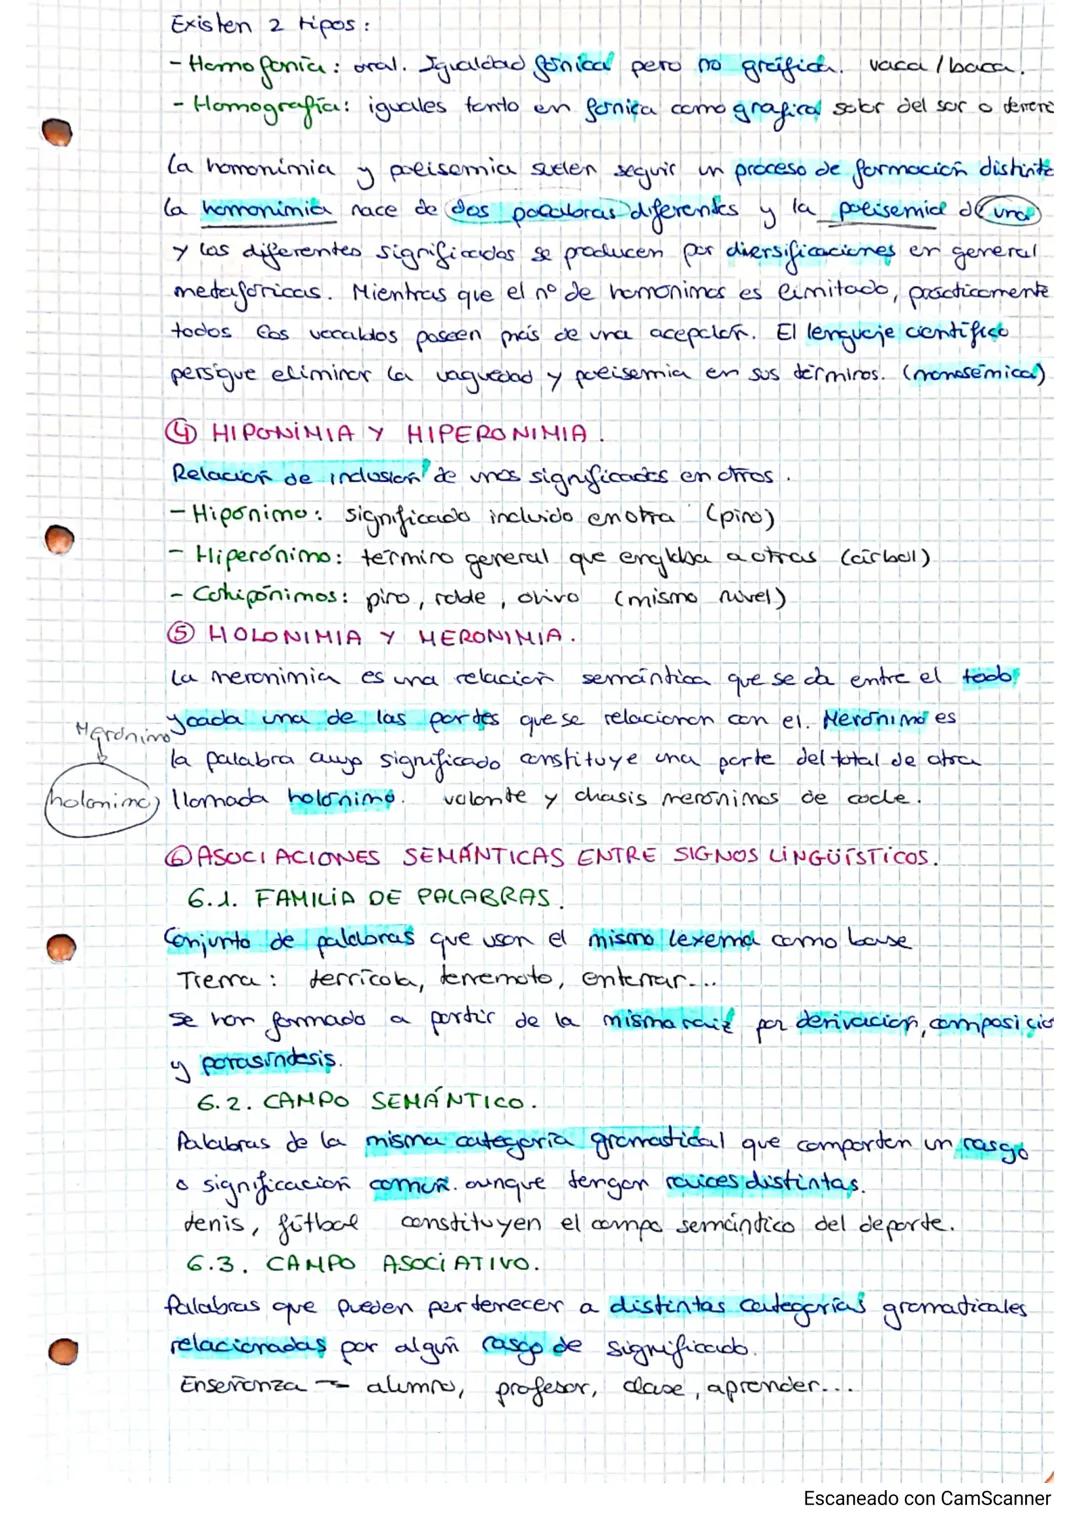 Existen 2 tipos:
- Homofonía: oral. Igualdad fónica pero no gráfica. vaca / baca.
- Homografía: iguales tanto en fónica como gráfica sobr del sar o
La homonimia y polisemia suelen seguir un proceso de formación distinto
la homonimia nace de dos palabras diferentes y la polisemia de una
y los diferentes significados se producen por diversificaciones en general
metafóricas. Mientras que el nº de homonimos es limitado, prácticamente
todos los vocablos poseen más de una acepción. El lenguaje científico
persigue eliminar la vaguedad y polisemia en sus términos. (monosémica)
④ HIPONIMIA Y HIPERONIMIA.
Relación de inclusión de unos significados en otros.
- Hipónimo: significado incluido en otra (pino)
- Hiperónimo: término general que engloba a otras (árbol)
- Cohipónimos: pino, roble, olivo (mismo nivel)
⑤ HOLONIMIA Y MERONIMIA.
La meronimia es una relación semántica que se da entre el todo
y cada una de las partes que se relacionan con el. Merónimo es
la palabra cuyo significado constituye una parte del total de otra
llamada holónimo. volante y chasis merónimos de coche.
Merónimo
holonimo
⑥ ASOCIACIONES SEMÁNTICAS ENTRE SIGNOS LINGÜÍSTICOS.
6.1. FAMILIA DE PALABRAS.
Conjunto de palabras que usan el mismo lexema como base
Tierra: terrícola, terremoto, enterrar...
Se han formado a partir de la misma raíz por derivación, composicio
y parasíntesis.
6.2. CAMPO SEMÁNTICO.
Palabras de la misma categoría gramatical que comparten un rasgo
o significación común. aunque tengan raíces distintas.
tenis, fútbol constituyen el campo semántico del deporte.
6.3. CAMPO ASOCIATIVO.
Palabras que pueden pertenecer a distintas categorías gramaticales
relacionadas por algún rasgo de significado.
Enseñanza → alumno, profesor, clase, aprender...
Escaneado con CamScanner